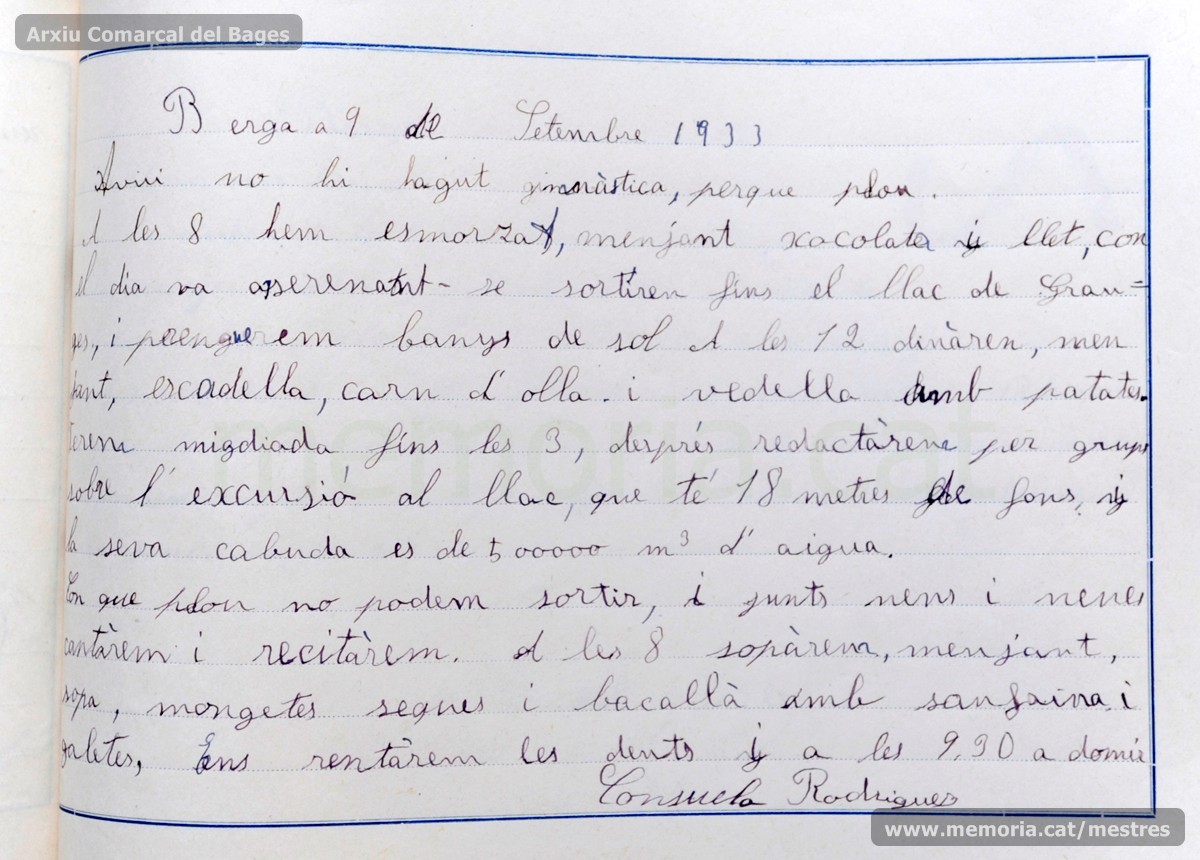 Arxiu Comarcal del Bages
Berga a 9 de Setembre 1933
Avui no hi hagut gimnàstica, perque plou.
A les 8 hem esmorzat, menjant xocolata i llet, con
el dia va asserenant- se sortiren fins el llac de Grau=
ges, i prenguerem banys de sol A les 12 dinàren, men
jant, escadella, carn d'olla. i vedella amb patates.
ferem migdiada fins les 3, després redactàrem per grups
sobre l'excursió al llac, que té 18 metres de fons, i
la seva cabuda es de 500000 m³ d'aigua.
Con que plou no podem sortir, i junts nens i nenes
cantàrem i recitàrem. A les 8 sopàrem, menjant,
sopa, mongetes seques i bacallà amb sanfaina i
galetes, Ens rentàrem les dents i a les 9.30 a domir
Consuelo Rodrigues
memoria.cat
www.memoria.cat/mestres